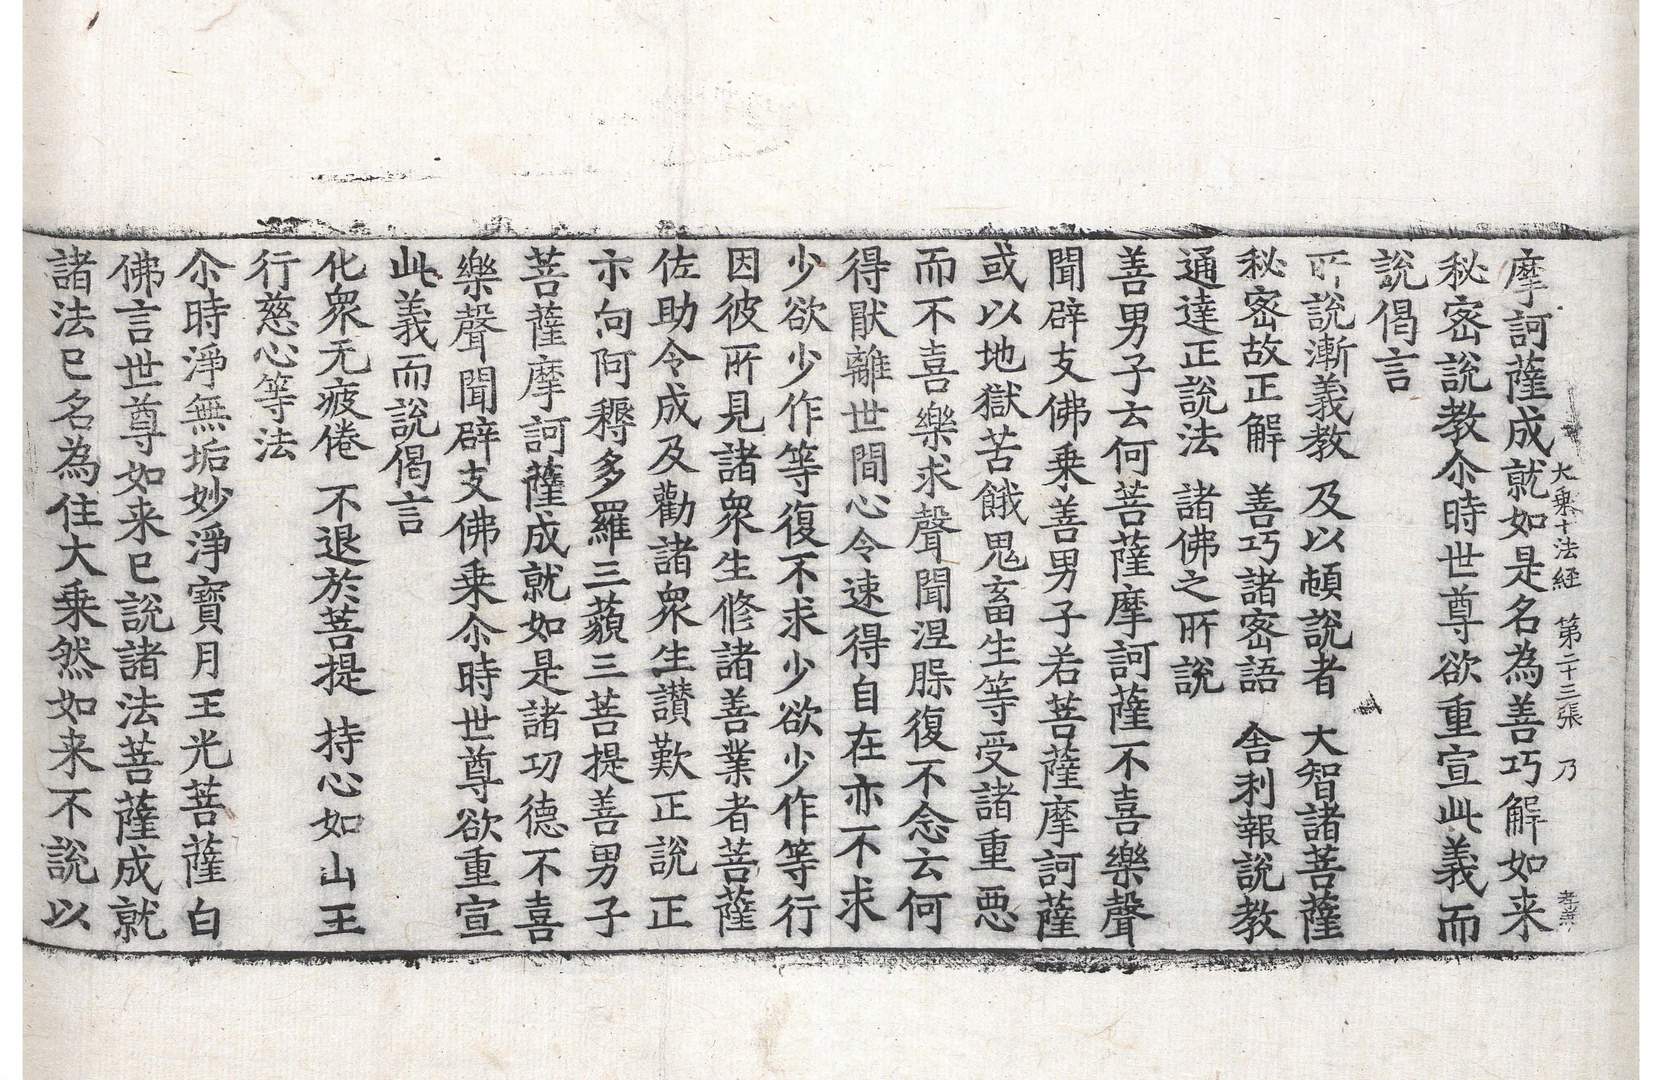 大乗十法経 第二十三張 乃
摩訶薩成就如是名為善巧解如来
秘宻說教尒時世尊欲重宣此義而
說偈言
所說漸義教 及以頓說者 大智諸菩薩
秘宻故正解 善巧諸宻語 舎利報說教
通達正說法 諸佛之所說
善男子云何菩薩摩訶薩不喜樂聲
聞辟支佛乗善男子若菩薩摩訶薩
或以地獄苦餓鬼畜生等受諸重悪
而不喜樂求聲聞涅槃復不念云何
得猒離世間心令速得自在亦不求
少欲少作等復不求少欲少作等行
因彼所見諸衆生修諸善業者菩薩
佐助令成及勸諸衆生讃歎正說正
示向阿耨多羅三藐三菩提善男子
菩薩摩訶薩成就如是諸功德不喜
樂聲聞辟支佛乗尒時世尊欲重宣
此義而說偈言
化衆无疲倦 不退於菩提 持心如山王
行慈心等法
尒時淨無垢妙淨寶月王光菩薩白
佛言世尊如来已說諸法菩薩成就
諸法已名為住大乗然如来不說以